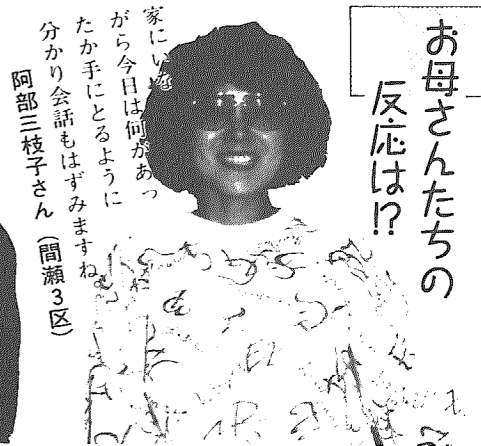 お母さんたちの
反応は!?
家にいな
がら今日は何があっ
たか手にとるように
分かり会話もはずみますね
阿部三枝子さん（間瀬3区）